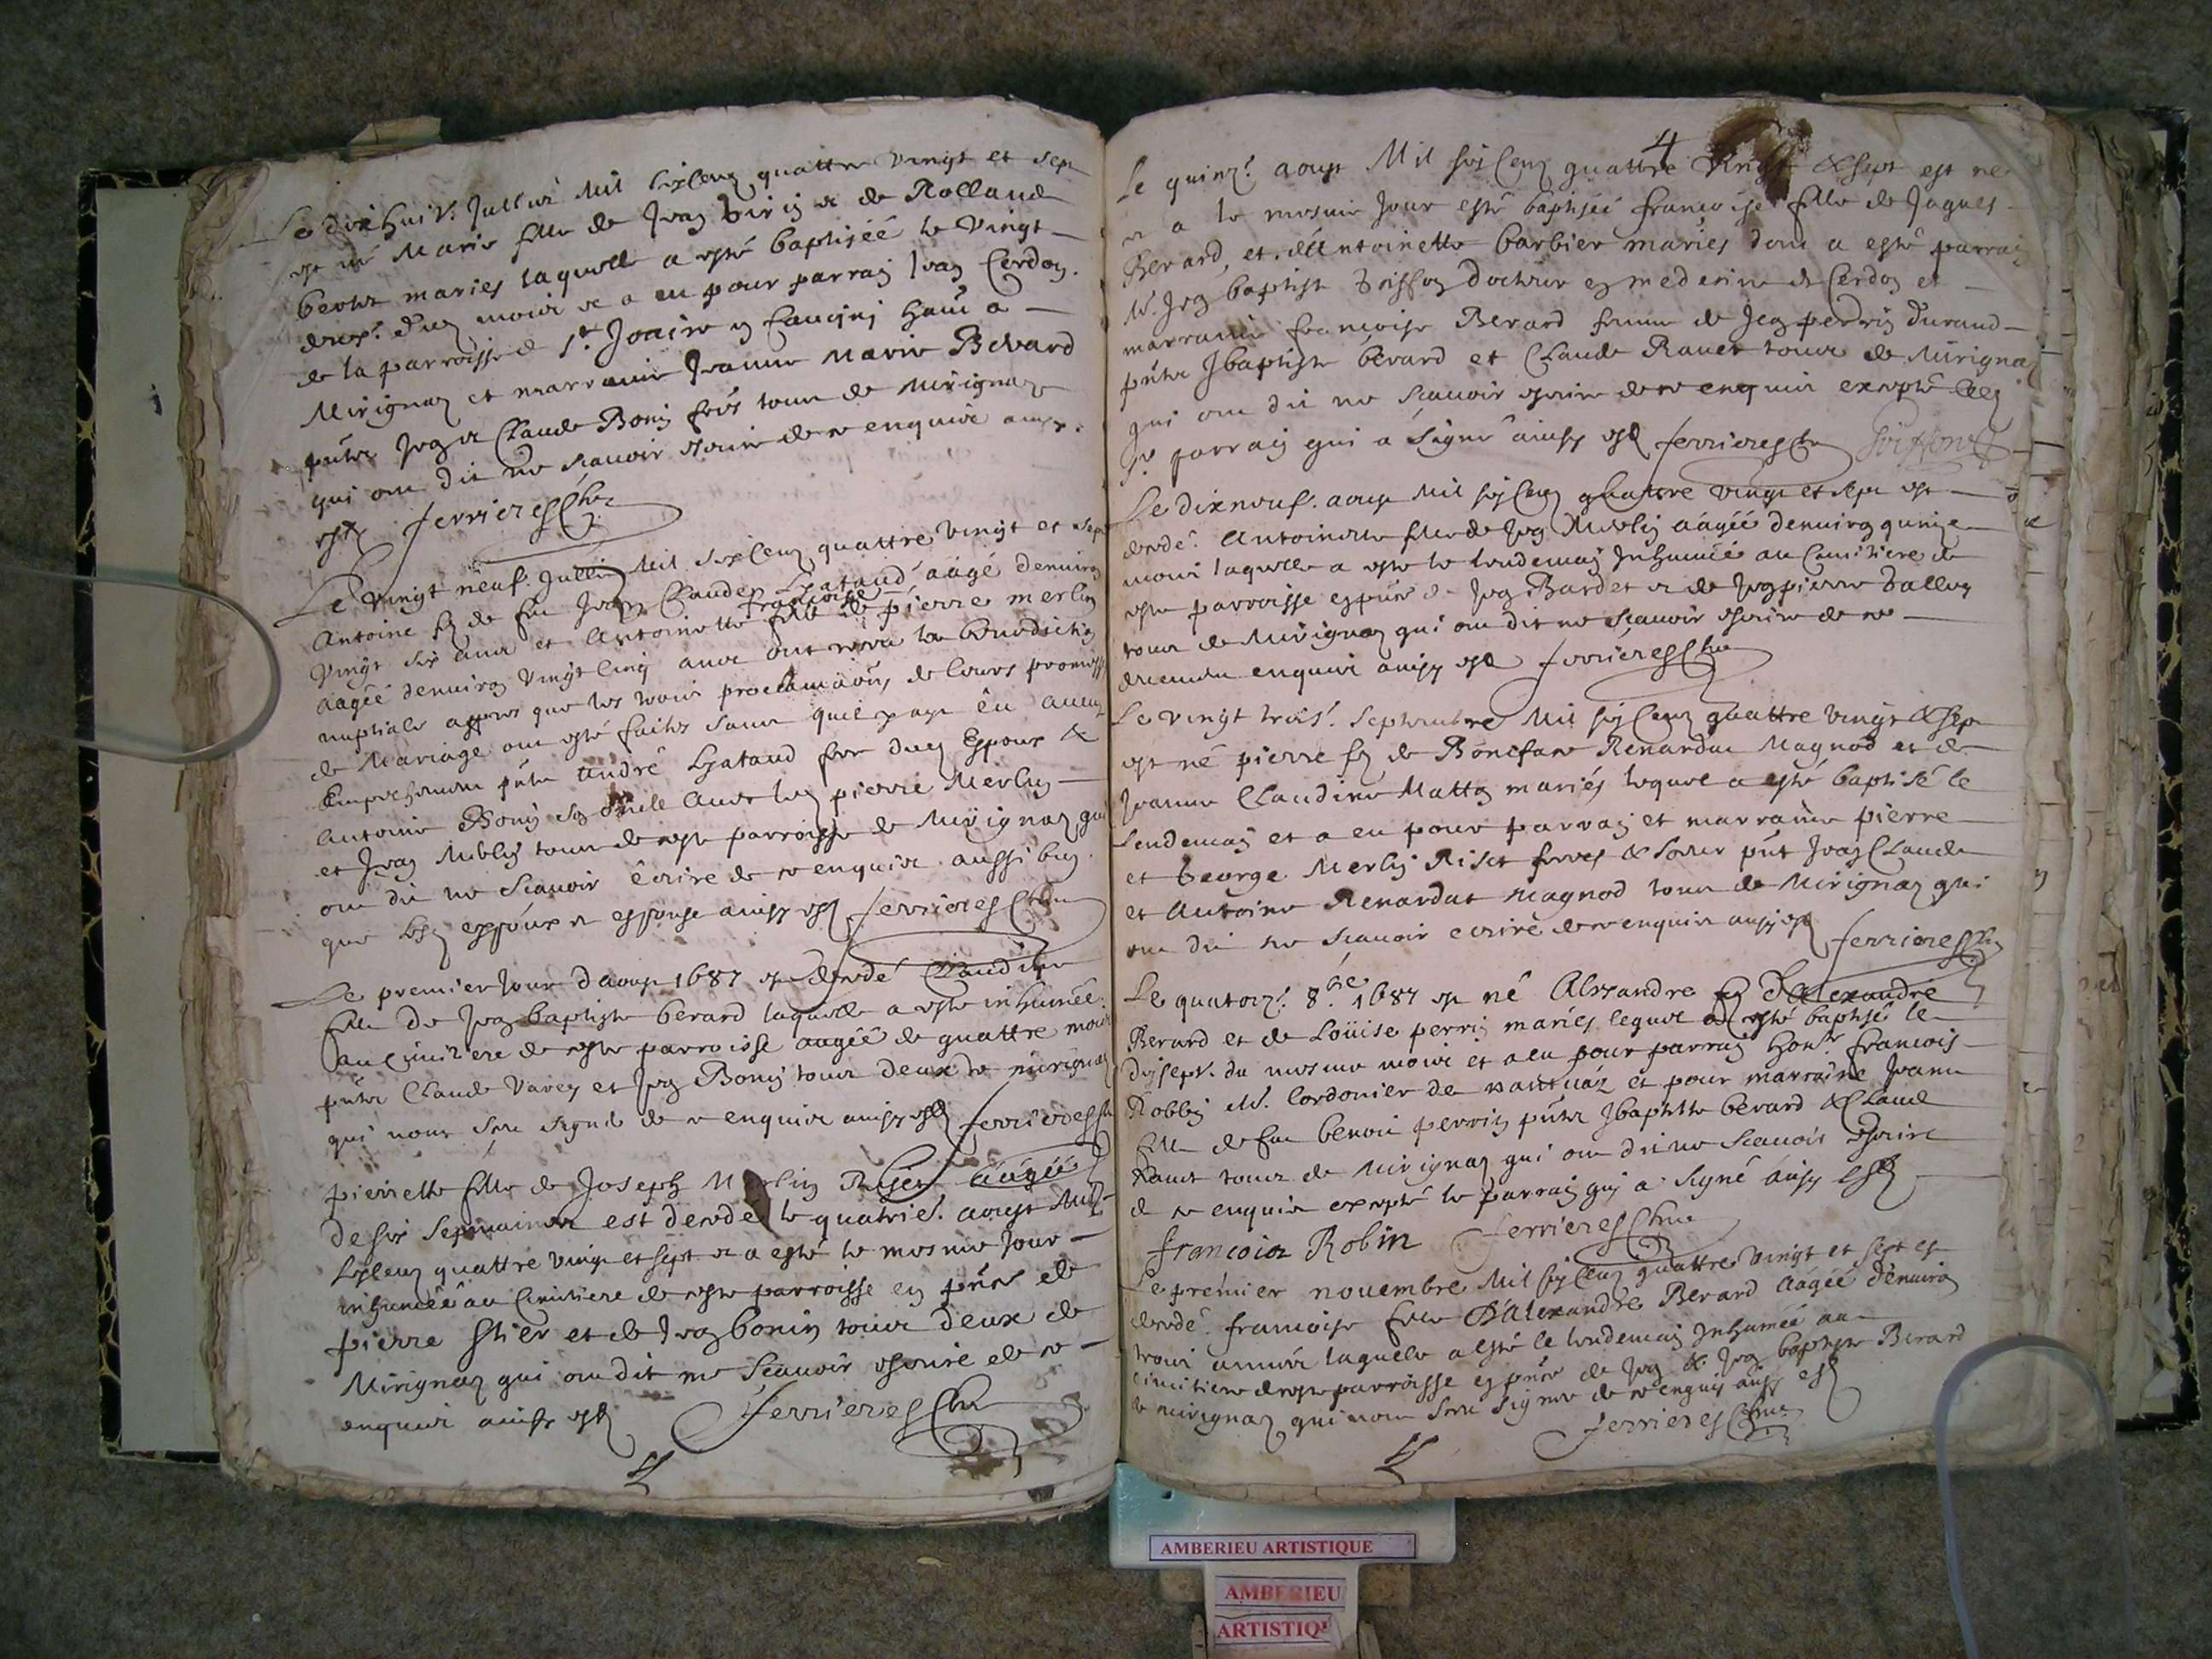 Le dixhuit. Juillet Mil six Cens quattre vingt et sept
est né Marie fille de Jean et de Rolland
maries laquelle a esté baptisée le vingt
moiw et a eu pour parrain Jean Cerdon
de la parroisse de St. Joaire
Mirignaz et marraine Jeanne Marie Bevard
pnts Jean et Claude Bonin tous de Mirignaz
qui ont dit ne scauoir escrire de ce enquis ainsy
est ferrieres Cure
Le vingt neuf. Juillet Mil six Cens quattre vingt et sept
Antoine fils de feu Jean Claude aâgé denuiron
vingt six ans et Antoinette françoise fille de pierre merlin
aagée denuiron vingt cinq ans ont receu la benediction
nuptiale appres que les trois proclamaôns de leurs promess
de Mariage ont esté faites sans quil y aye eu aucun
Empeschement pnts André frere dud Espoux &
Antoine Bonin son oncle pierre Merlin
et Jean tous de ceste parroisse de Mirignaz qui
ont dit ne scauoir écrire de ce enquis aussi bien
que les espoux et espouse ainsy est ferrieres Cure
Le premier Jour daoust 1687 est decedé Claudine
fille de Jean baptiste berard laquelle a esté inhumée
au Cimitiere de ceste parroisse aagée de quattre mois
pnts Claude Varey et Jean Bonin tous deux de mirignaz
qui nont sceu signé de ce enquis ainsy est ferrieres Cure
pierrette fille de Joseph Merlin Riset aâgée
de six sepmaines est decedé le quatrie. aoust Mil
six Cens quattre vingt et sept et a esté le mesme Jour
inhumée au Cimitiere de ceste parroisse en pnce de
pierre et de Jean bonin tous deux de
Mirignaz qui ont dit ne scauoir escrire de ce
enquis ainsy est ferrieres Cure
4
Le quinz. aoust Mil six Cens quattre vingt & sept est ne
et a le mesme Jour esté baptisée francoise fille de Jaques
Berard, et d'Antoinette barbier maries dont a esté parrain
M. Jean baptiste docteur en medecine de Cerdon et
marraine francoise Berard femme de Jean perrin durand
pnts Jbaptiste bérard et Claude Ravet tous de Mirignaz
qui ont dit ne scauoir escrire de ce enquis excepté led
Sr. parrain qui a signé ainsy est ferrieres Cure
Le dixneuf. aoust Mil six Cens quattre vingt et sept est
decedé. Antoinette fille de Jean aâgée denuiron quinze
mois laquelle a esté le lendemain Inhumée au Cimitiere de
ceste parroisse en pnce de Jean Bardet et de Jean pierre
tous de Mirignaz qui ont dit ne scauoir escrire de ce
enquis ainsy est ferrieres Cure
Le vingt trois. septembre Mil six Cens quattre vingt & sept
est né pierre fils de Boniface Renardat Magnod et de
Jeanne Claudine Matton mariés lequel a esté baptisé le
Lendemain et a eu pour parrain et marraine pierre
et George Merlin Riset freres & soeur pnt Jean Claude
et Antoine Renardat magnod tous de Mirignaz qui
ont dit ne scauoir ecrire de ce enquis ainsy est ferrieres Cure
Le quatorz. 8.bre 1687 est né Alexandre fils d'Alexandre
Berard et de Loüise perrin mariés lequel a esté baptisé le
dixsept. du mesme mois et a eu pour parrain hon.ste francois
Robbin M. Cordonier de nantuáz et pour marraine Jeanne
fille de feu benoit perrin pnts Jbaptiste bérard & Claude
Ravet tous de Mirignaz qui ont dit ne scauoir escrire
de ce enquis excepté le parrain qui a signé ainsy est
francoiz Robin ferrieres Cure
Le prémier novembre Mil six Cens quattre vingt et sept est
decedé. francoise fille d'Alexandre Berard aâgée dénuiron
trois années laquelle a esté le lendemain Inhumée au
Cimitiere de ceste parroisse en pnce de Jean & Jean baptiste Berard
de mirignaz qui nont sceu signer de ce enquis ainsy est
ferrieres Cure
AMBERIEU ARTISTIQUE
AMBERIEU
ARTISTIQU